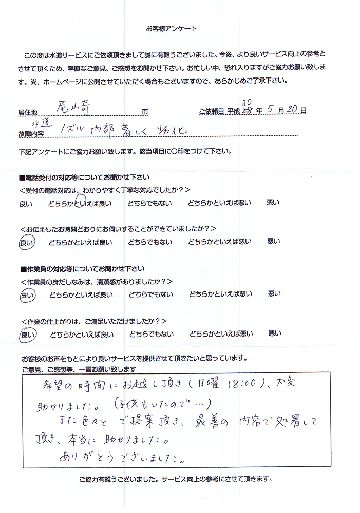 お客様アンケート
この度は水道サービスにご依頼頂きまして誠に有難うございました。今後、より良いサービス向上の参考と
させて頂くため、率直なご意見、ご感想をお聞かせ下さい。お忙しい中、恐れ入りますがご協力お願い致しま
す。尚、ホームページに公開させていただく場合もございますので、あらかじめご了承下さい。
居住地 尾山台 市 ご依頼日 平成 30 年 5 月 20 日
水道
故障内容 ノズル内部 著しく 劣化
下記アンケートにご協力お願い致します。該当項目に〇印をつけて下さい。
■電話受付の対応等についてお聞かせ下さい
<受付の電話対応は、わかりやすく丁寧な対応でしたか?>
良い どちらかといえば良い どちらでもない どちらかといえば悪い 悪い
<お伝えしたお時間どおりにお伺いすることができていましたか?>
良い どちらかといえば良い どちらでもない どちらかといえば悪い 悪い
■作業員の対応等についてお聞かせ下さい
<作業員の身だしなみは、清潔感がありましたか?>
良い どちらかといえば良い どちらでもない どちらかといえば悪い 悪い
<作業の仕上がりは、ご満足いただけましたか?>
良い どちらかといえば良い どちらでもない どちらかといえば悪い 悪い
お客様のお声をもとにより良いサービスを提供させて頂きたいと思っています。
ご意見、ご感想等、一言お願い致します
希望の時間にお越し頂き(日曜 18:00)、大変
助かりました。(子供もいたので…)
また色々と ご提案頂き、最善の 内容で処置して
頂き、本当に 助かりました。
ありがとうございました。
ご協力有難うございました。サービス向上の参考にさせて頂きます。